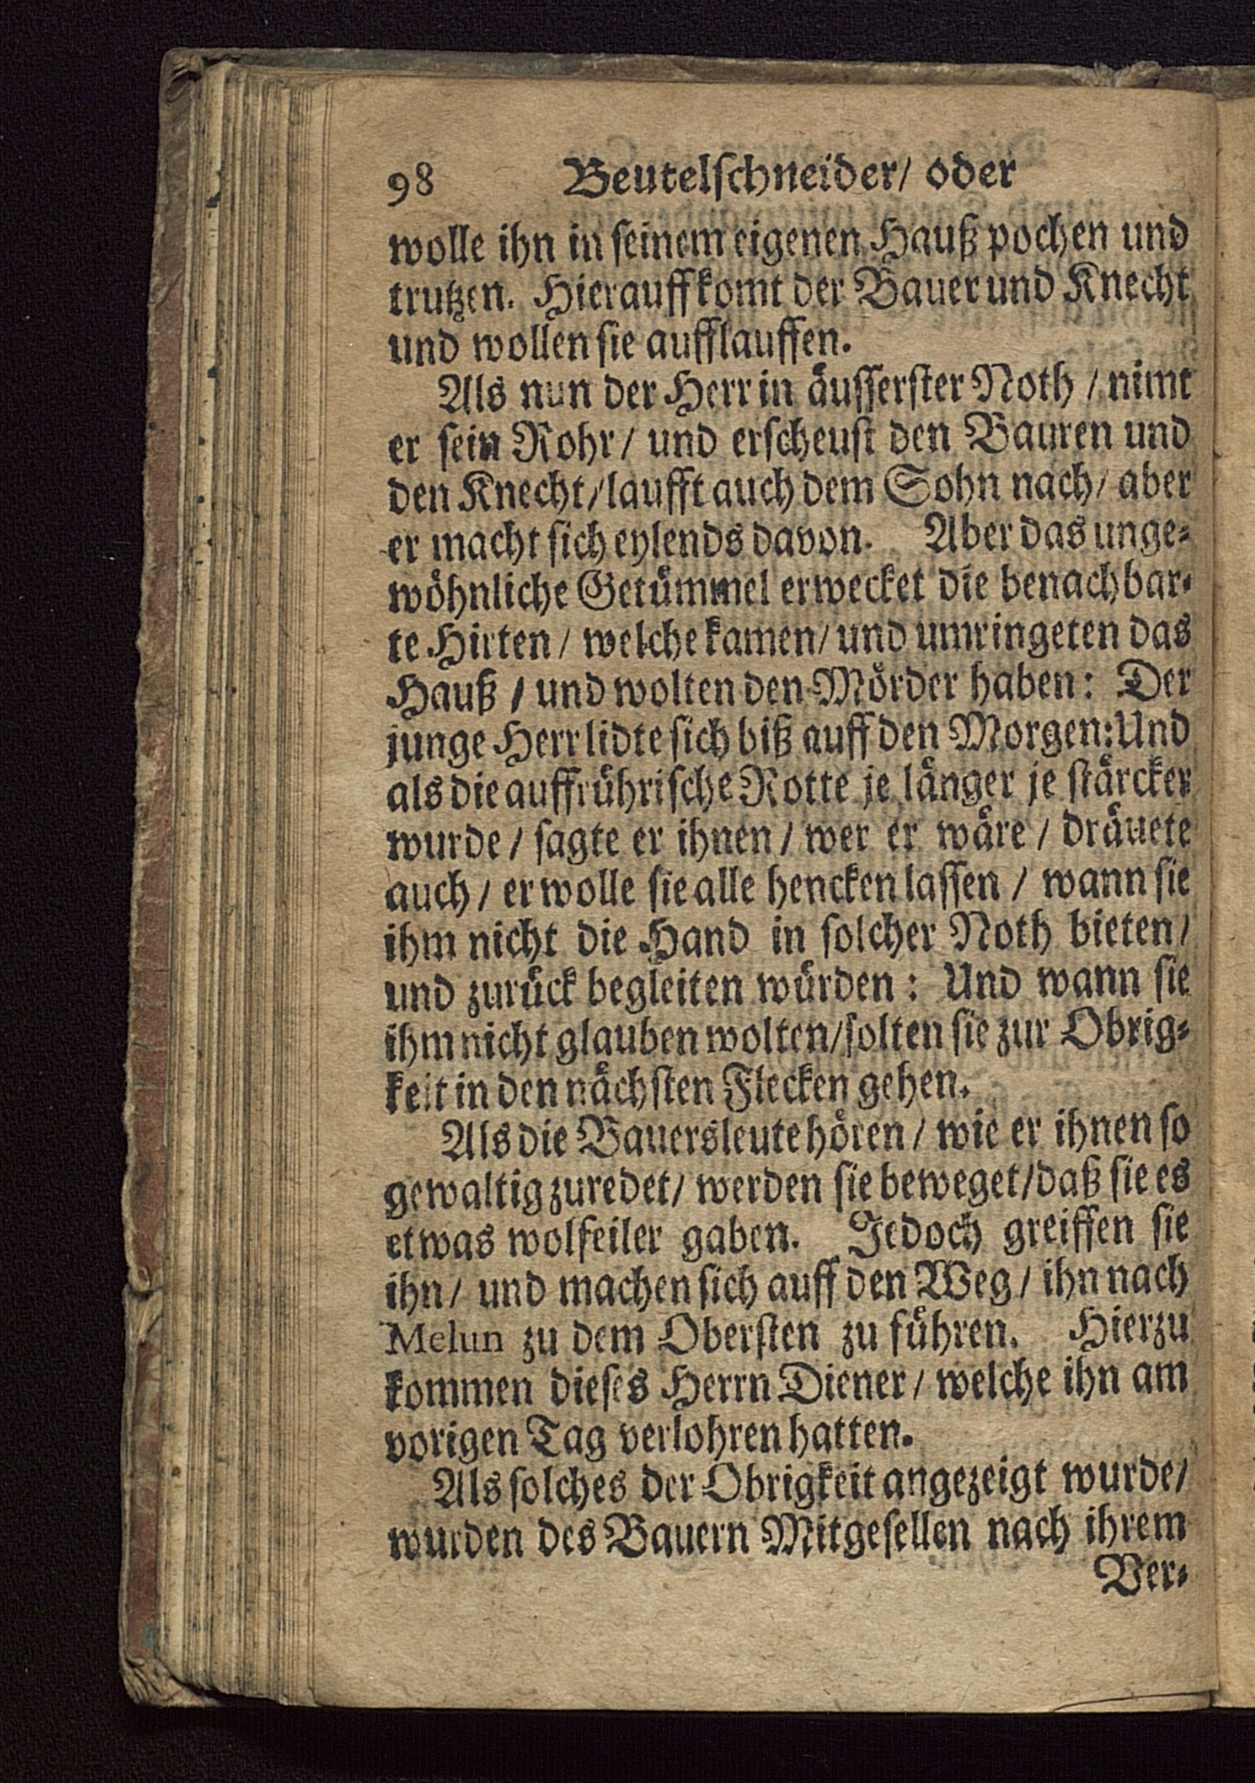 98 Beutelschneider/ oder
wolle ihn in seinem eigenen Hauß pochen und
trutzen. Hierauff komt der Bauer und Knecht
und wollen sie aufflauffen.
Als nun der Herr in äusserster Noth / nimt
er sein Rohr / und erscheust den Bauren und
den Knecht / laufft auch dem Sohn nach / aber
er macht sich eylends davon. Aber das unge-
wöhnliche Getümmel erwecket die benachbar-
te Hirten / welche kamen / und umringeten das
Hauß / und wolten den Mörder haben: Der
junge Herr lidte sich biß auff den Morgen: Und
als die auffrührische Rotte je länger je stärcker
wurde / sagte er ihnen / wer er wäre / dräuete
auch / er wolle sie alle hencken lassen / wann sie
ihm nicht die Hand in solcher Noth bieten /
und zurück begleiten würden: Und wann sie
ihm nicht glauben wolten / solten sie zur Obrig-
keit in den nächsten Flecken gehen.
Als die Bauersleute hören / wie er ihnen so
gewaltig zuredet / werden sie beweget / daß sie es
etwas wolfeiler gaben. Jedoch greiffen sie
ihn / und machen sich auff den Weg / ihn nach
Melun zu dem Obersten zu führen. Hierzu
kommen dieses Herrn Diener / welche ihn am
vorigen Tag verlohren hatten.
Als solches der Obrigkeit angezeigt wurde /
wurden des Bauern Mitgesellen nach ihrem
Ver-